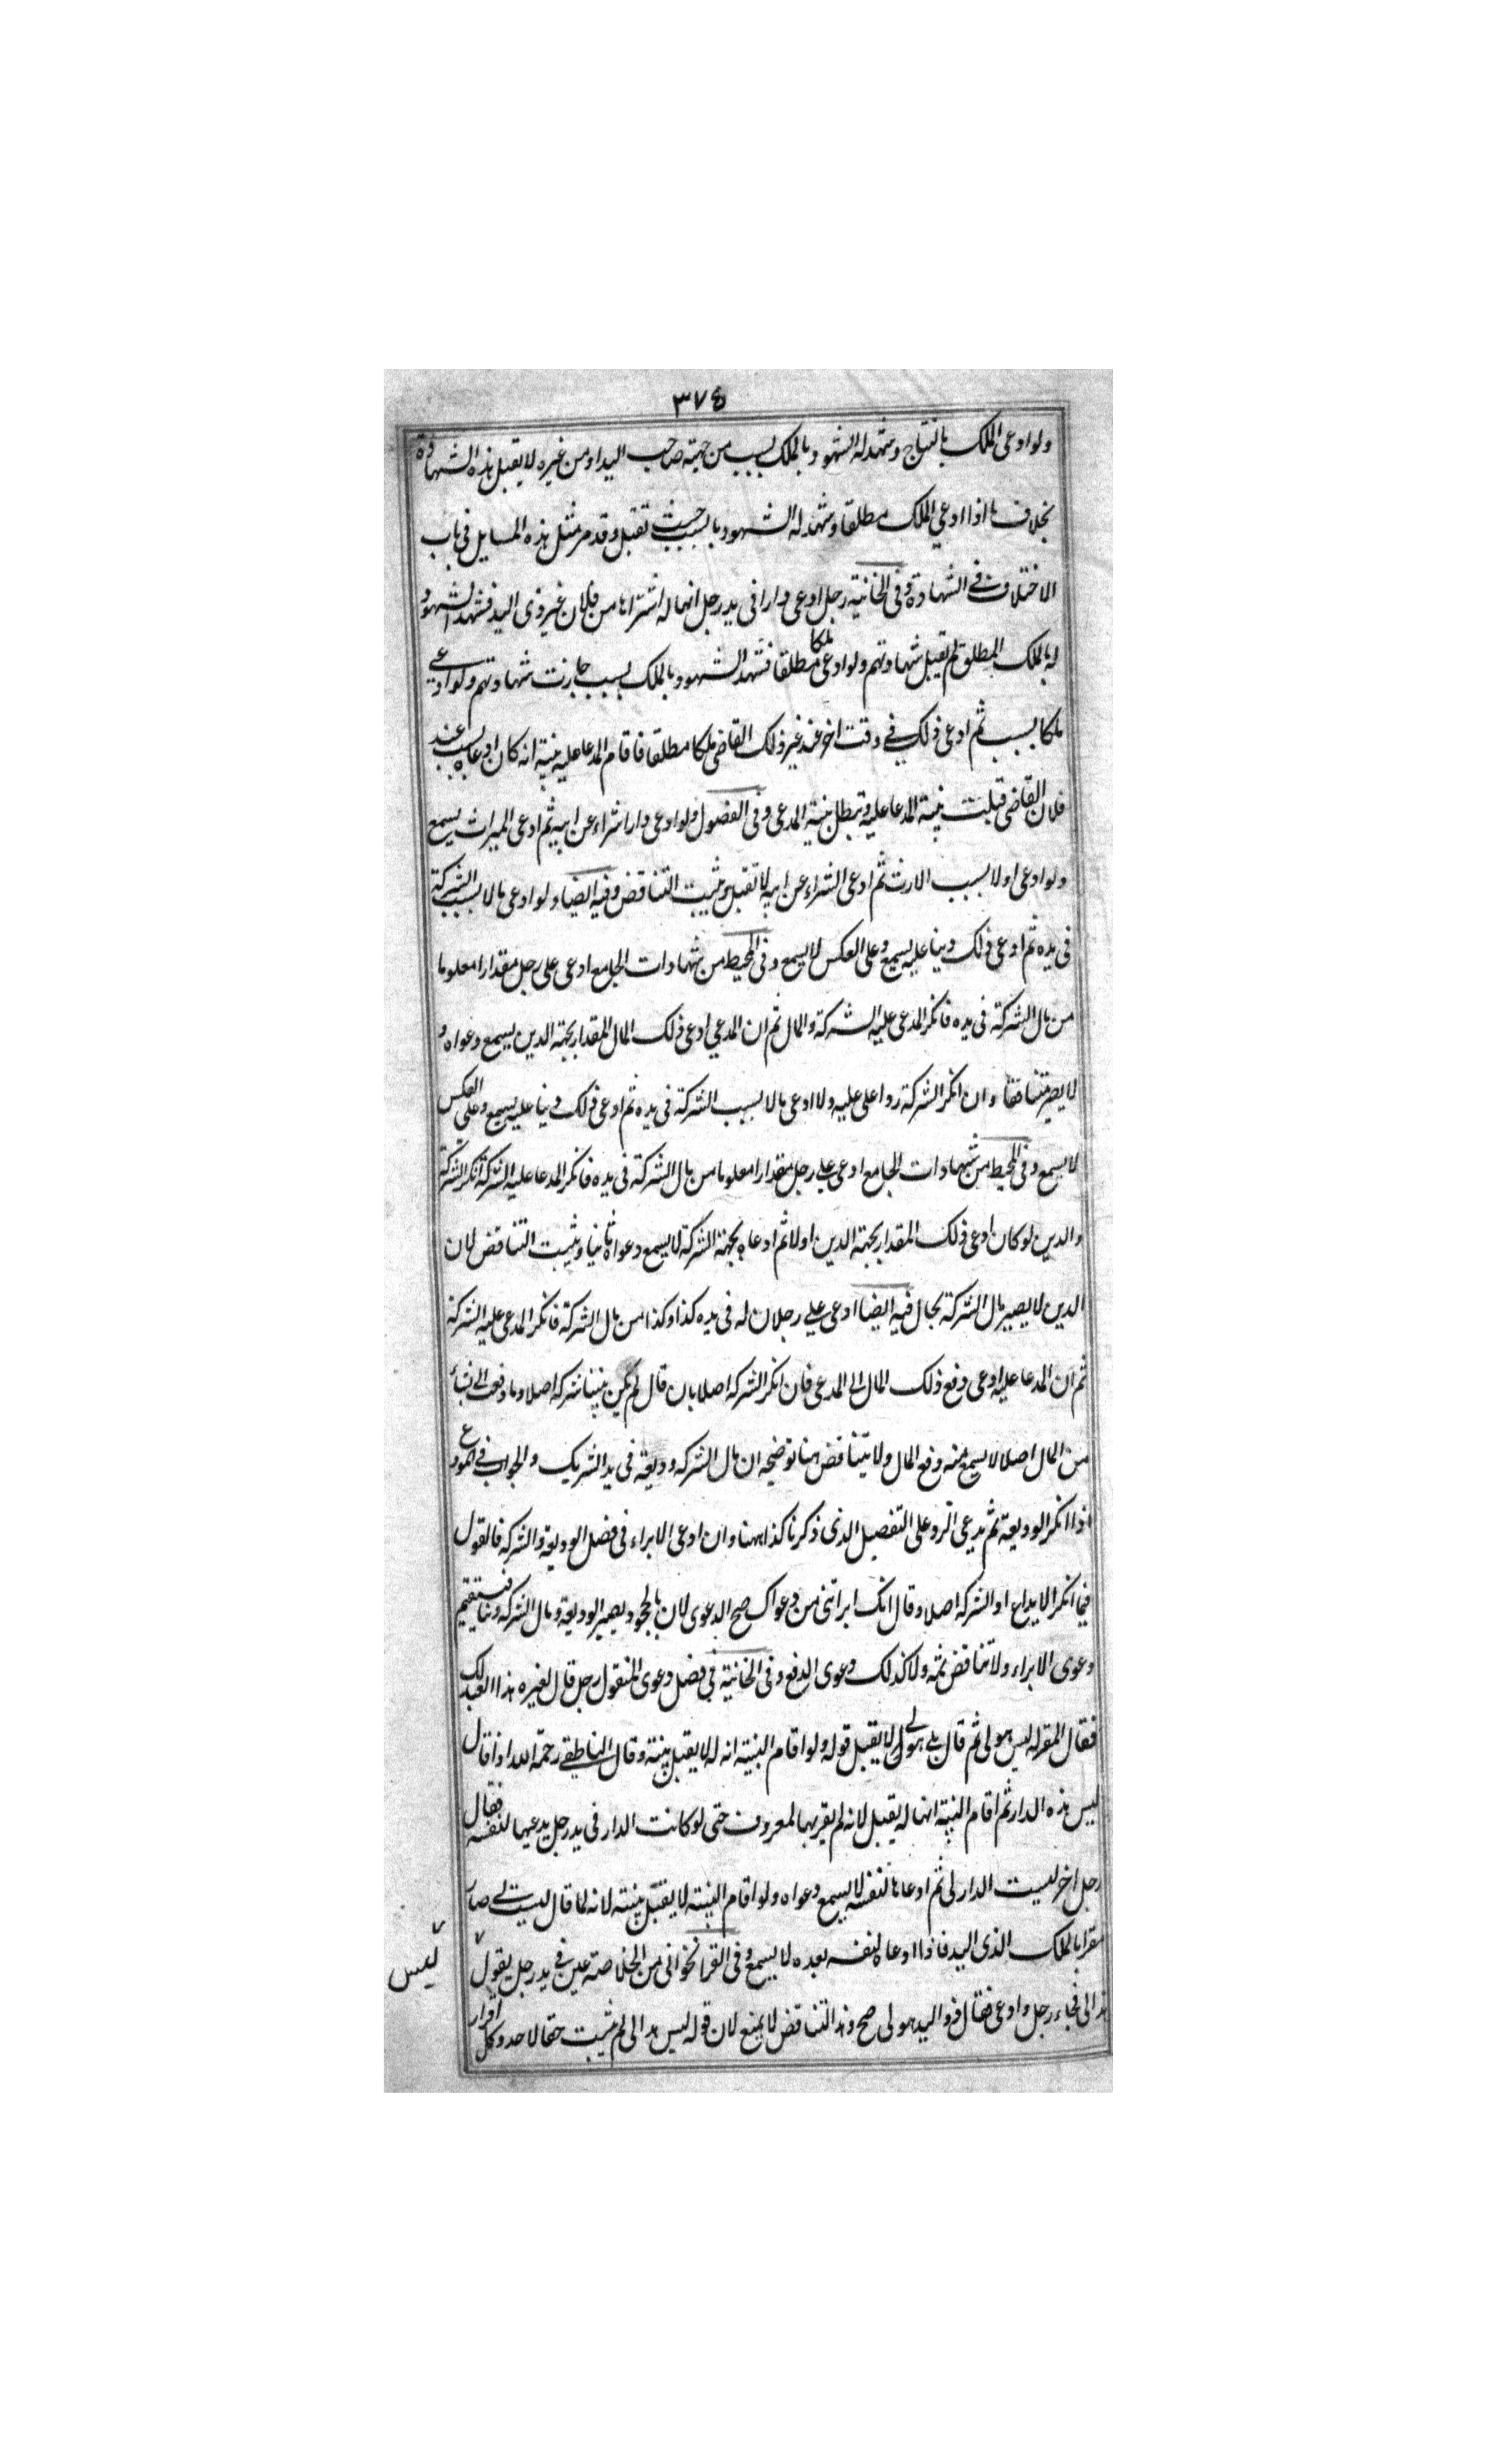 ٣٧٤
ولو ادعى الملك بالنتاج وشهد له الشهود بالملك بسبب من جهة صاحب اليد او من غيره لا يقبل هذه الشهادة
بخلاف ما اذا ادعى الملك مطلقا وشهد له الشهود بالسبب حيث تقبل وقد مر مثل هذه المسايل فى باب
الاختلاف فى الشهادة وفى الخانية رجل ادعى دارا فى يد رجل انها له اشتراها من فلان غير ذى اليد فشهد الشهود
له بالملك المطلق لم يقبل شهادتهم ولو ادعى ملكا مطلقا فشهد الشهود بالملك بسبب جازت شهادتهم ولو ادعى
ملكا بسبب ثم ادعى ذلك فى وقت اخر عند غير ذلك القاضى ملكا مطلقا فاقام المدعا عليه بينة انه كان ادعاه بسبب عند
فلان القاضى قبلت بينة المدعا عليه وتبطل بينة المدعى وفى الفصول ولو ادعى دارا شراء عن ابيه ثم ادعى الميراث يسمع
ولو ادعى اولا بسبب الارث ثم ادعى الشراء عن ابيه لا تقبل ويثبت التناقض وفيه ايضا ولو ادعى مالا بسبب الشركة
فى يده ثم ادعى ذلك دينا عليه يسمع وعلى العكس لا يسمع وفى المحيط من شهادات الجامع ادعى على رجل مقدارا معلوما
من مال الشركة فى يده فانكر المدعى عليه الشركة والمال ثم ان المدعي ادعى ذلك المال المقدار بجهة الدين يسمع دعواه و
لا يصير متناقضا وان انكر الشركة ردا على عليه ولا ادعى مالا بسبب الشركة فى يده ثم ادعى ذلك دينا عليه يسمع وعلى العكس
لا يسمع وفى المحيط من شهادات الجامع ادعى على رجل مقدارا معلوما من مال الشركة فى يده فانكر المدعا عليه الشركة انكر الشركة
والدين لو كان ادعى ذلك المقدار بجهة الدين اولا ثم ادعاه بجهة الشركة لا يسمع دعواه ثانيا ويثبت التناقض لان
الدين لا يصير مال الشركة بحال فيه ايضا ادعى على رجل ان له فى يده كذا وكذا من مال الشركة فانكر المدعى عليه الشركة
ثم ان المدعا عليه ادعى دفع ذلك المال الى المدعى فان انكر الشركه اصلا بان قال لم يكن بيننا شركه اصلا وما دفعت الى شياء
من المال اصلا لا يسمع منه دفع المال ولا يتناقض هنا توضيحه ان مال الشركه وديعة فى يد الشريك والجواب فى المودع
اذا انكر الوديعة ثم يدعى الرد على التفصيل الذى ذكرنا كذا ههنا وان ادعى الابراء فى فصل الوديعة والشركه فالقول
فيما انكر الايداع او الشركه اصلا وقال انك ابراتنى من دعواك صح الدعوى لان بالجحود يصير الوديعة ومال الشركه دينا فيستقيم
دعوى الابراء ولا تناقض ثمه ولا كذلك دعوى الدفع وفى الخانية فى فصل دعوى المنقول رجل قال لغيره هذا العبد لك
فقال المقر له ليس هو لى ثم قال بلى هو لى لا يقبل قوله ولو اقام البينة انه له لا يقبل بينته وقال الناطقى رحمة الله اذا قال
ليس هذه الدار ثم اقام البينة انها له يقبل لانه لم يقر بها لمعروف حتى لو كانت الدار فى يد رجل يدعيها لنفسه فقال
رجل اخر ليست الدار لى ثم ادعاها لنفسه لا يسمع دعواه ولو اقام البينة لا يقبل بينته لانه لما قال ليست لى صار
مقرا بالملك الذى اليد فاذا ادعاه لنفسه بعده لا يسمع وفى القراخوانى من الخلاصة عين فى يد رجل يقول
ليس
هذا لى فجاء رجل وادعى فقال ذو اليد هو لى صح وهذا التناقض لا يمنع لان قوله ليس هذا لى لم يثبت حقا لاحد وكل اقرار